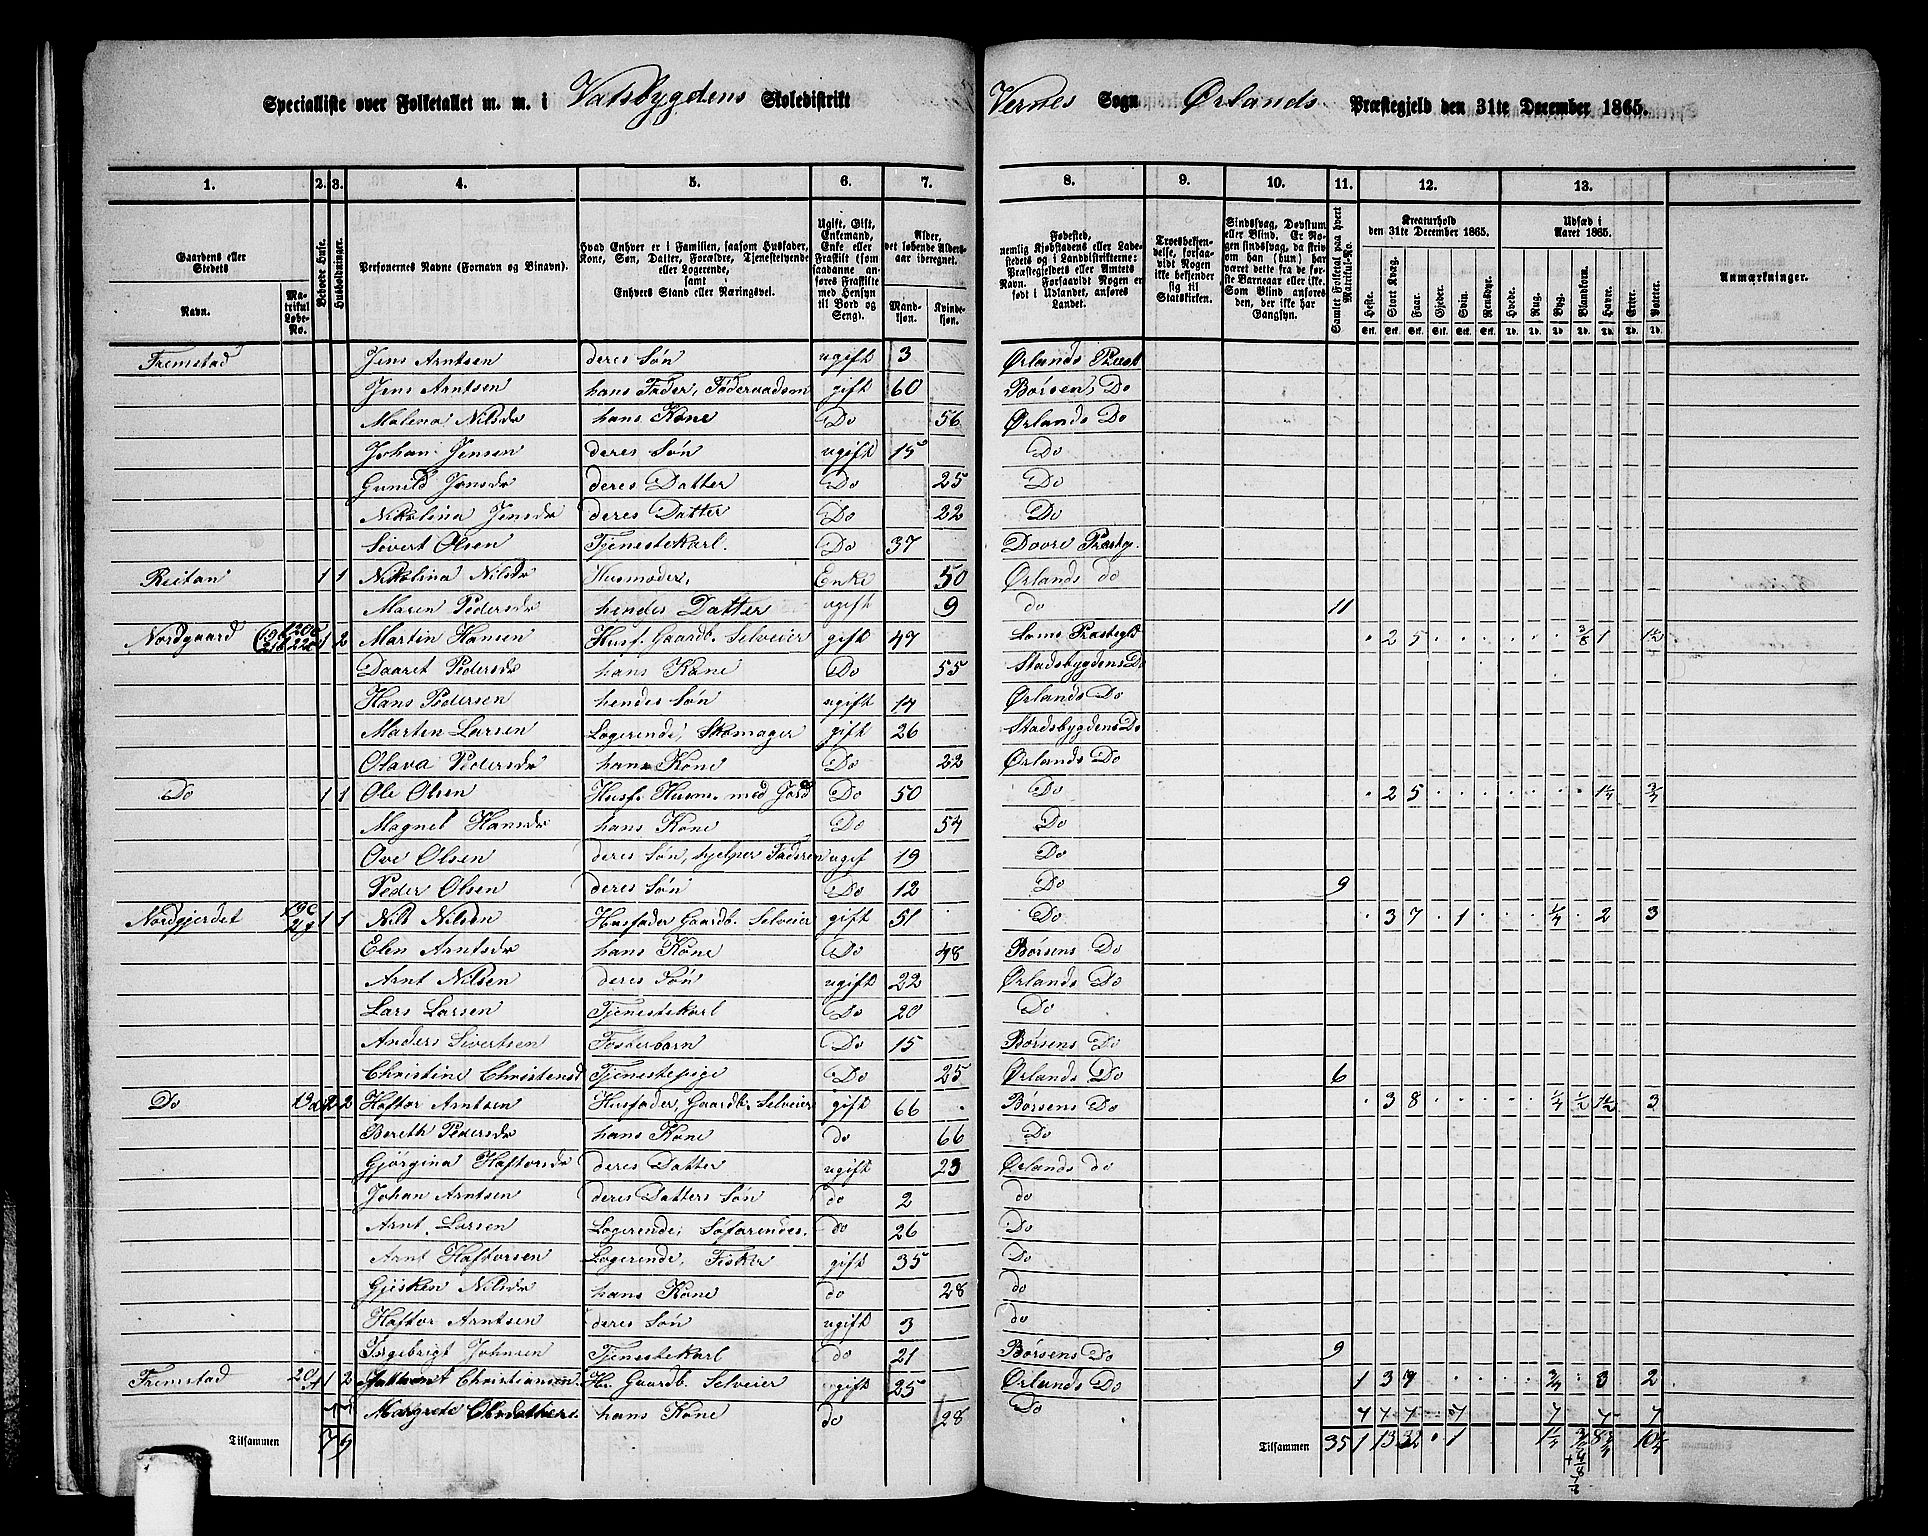 Specialliste over Folketallet m. m. i Vatsbygdens Skoledistrikt Vernes Sogn Ørlands Præstegjeld den 31te December 1865.
1. 2. 3. 4. 5. 6. 7. 8. 9. 10. 11. 12. 13.
Gaardens eller Stedets
Navn.
Matrikul Løbe-No.
Beboede Huse.
Husholdninger.
Personernes Navne (Fornavn og Binavn).
Hvad Enhver er i Familien, saasom Husfader, Kone, Søn, Datter, Forældre, Tjenestetyende eller Logerende, samt Enhvers Stand eller Næringsvei.
Ugift, Gift, Enkemand, Enke eller Fraskilt (som saadanne anføres Fraskilte med Hensyn til Bord og Seng).
Alder, det løbende Aldersaar iberegnet.
Mandkjøn. Kvindekjøn.
Fødested, nemlig Kjøbstadens eller Ladestedets og i Landdistrikterne: Præstegjeldets eller Amtets Navn. Forsaavidt Nogen er født i Udlandet, anføres Landet.
Troesbekjendelse, forsaavidt Nogen ikke bekjender sig til Statskirken.
Sindssvag, Døvstum eller Blind. Er Nogen sindssvag, da skriv om han (hun) har været dette fra de første Barneaar eller ikke. Som Blind anføres den, der ikke har Gangsyn.
Samlet Folketal paa hvert Matrikul-No.
Kreaturhold den 31te December 1865.
Heste. Stort Kvæg. Faar. Gjeder. Svin. Rensdyr.
Udsæd i Aaret 1865.
Hvede. Rug. Byg. Blandkorn. Havre. Erter. Poteter.
Anmærkninger.
Fremstad Jens Arntsen deres Søn ugift 3 Ørlands Præst
Jens Arntsen hans Fader, Føderaadsm gift 60 Børsen, Do
Malena Nilsdr hans Kone Do 56 Ørlands Do
Johan Jensen deres Søn ugift 15 Do
Gunild Jensdr deres Datter Do 25 Do
Nikolina Jensdr deres Datter Do 22 Do
Sivert Olsen Tjenestekarl. Do 37 Præstgj.
Reitan 1 1 Nikolina Nilsdr Husmoder, Enke 50 Ørlands do
Maren Pedersdr hendes Datter ugift 9 do 11
Nordgaard 1 2 Martin Hansen Husf. Gaardb. Selveier gift 47 Præstegld 2 5 3/8 1 1 1/2
Daaret Pedersdr hans Kone Do 55 Stadsbygdens Do
Hans Pedersen hendes Søn ugift 14 Ørlands Do
Marten Larsen Logerende, Skomager gift 26 Stadsbygdens Do
Olava Pedersdr hans Kone Do 22 Ørlands Do
Do 1 1 Ole Olsen Husf. Husm. med Jord Do 50 Do 2 5 1 1/4 3/4
Magnel Hansdr hans Kone Do 54 Do
Ove Olsen deres Søn, hjelper Faderen ugif 19 Do
Peder Olsen deres Søn Do 12 Do 9
Nordgjerdet 19c 1 1 Nils Nilsen Husfader Gaardb. Selveier gift 51 Do 3 7 1 1/4 2 3
Elen Arntsdr hans Kone Do 48 Børsens Do
Arnt Nilsen deres Søn ugift 22 Ørlands Do
Lars Larsen Tjenestekarl Do 20 Do
Anders Sivertsen Fosterbarn Do 15 Børsens Do
Christine Christensd Tjenestepige Do 25 Ørlands Do 6
Do 2 2 Haftor Arntsen Husfader, Gaardb. Selveier gift 66 Børsens Do 3 8 1/4 1/2 1 1/2 3
Bereth Pedersdr hans Kone do 66 Do
Gjørgina Haftorsdr deres Datter ugift 23 Ørlands do
Johan Arntsen deres Datters Søn do 2 do
Arnt Larsen Logerende, Søfarendes. do 26 Do
Arnt Haftorsen Logerende, Fisker gift 35 Do
Gjesken Nilsdr hans Kone do 28 do
Haftor Arntsen deres Søn ugift 3 do
Ingebrigt Johnsen Tjenestekarl do 21 Børsens Do 9
Fremstad 1 2 Christiansen Gaardb. Selveier gift 25 Ørlands Do 1 3 3/4 3 2
Margrete hans Kone do 28 Do
Tilsammen 7 9 Tilsammen 35 1 13 32 1 1 1/4 8 3/4 10 1/4